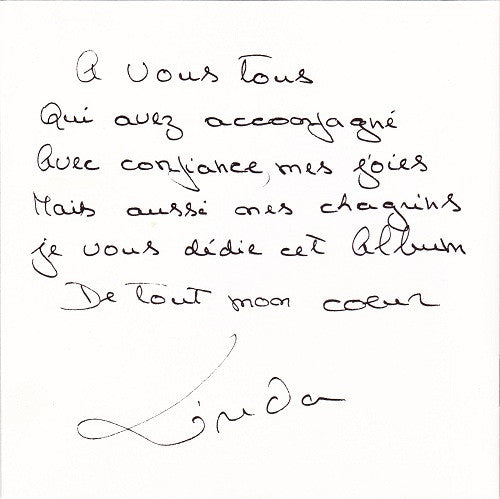 A vous tous
Qui avez accompagné
Avec confiance, mes joies
Mais aussi mes chagrins
je vous dédie cet Album
De tout mon coeur
Linda